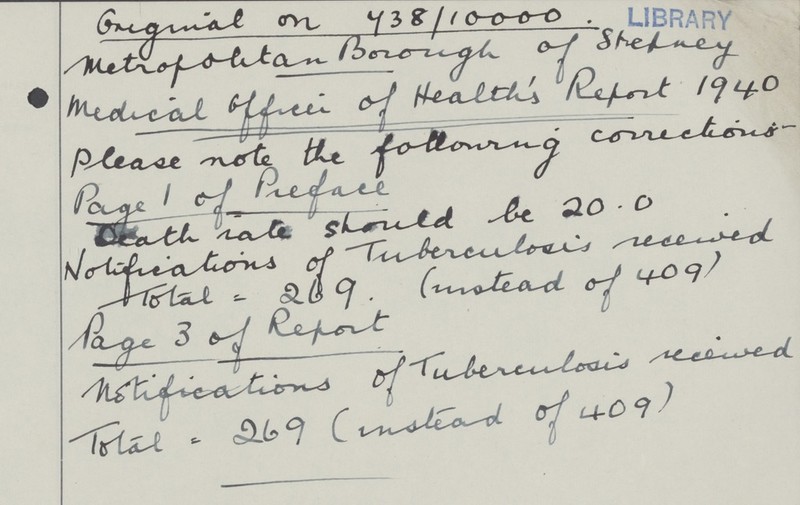 Original on 438/10000. LIBRARY
Metropolitan Borough of Stepney
Medical Officer of Health's Report 1940
Please note the following corrections-
Page 1 of Preface
Death rate should be 20.0
Notifications of Tuberculosis received
Total = 269. (instead of 409)
Page 3 of Report
Notifications of Tuberculosis received
Total = 269 (instead of 409)